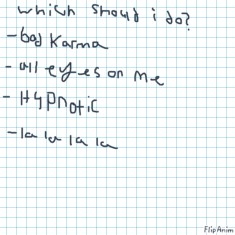 which should i do?
-bad Karma
-all eyes on me
-Hypnotic
-la la la la
FlipAnim